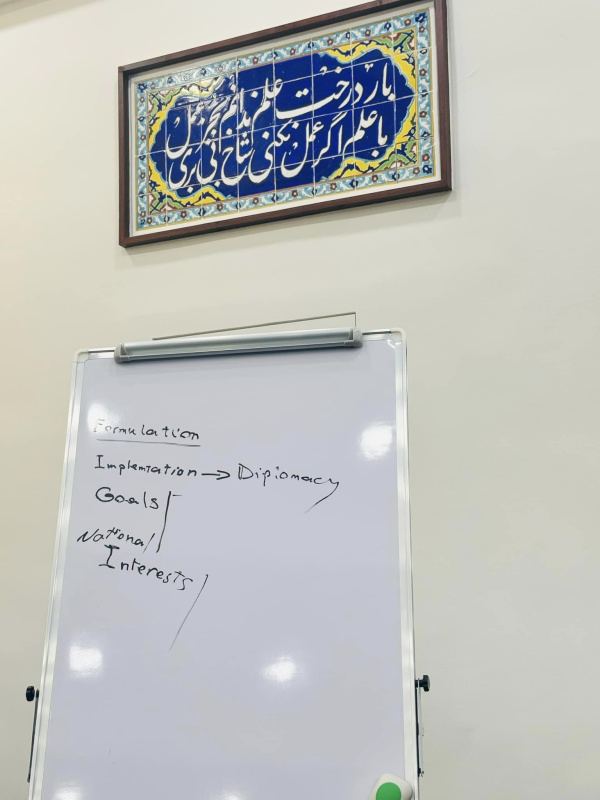 بار درخت علم ندانم بجز عمل
با علم اگر عمل نکنی شاخ بی بری
Formulation
Implemtation → Dipiomacy
Goals
National
Interests